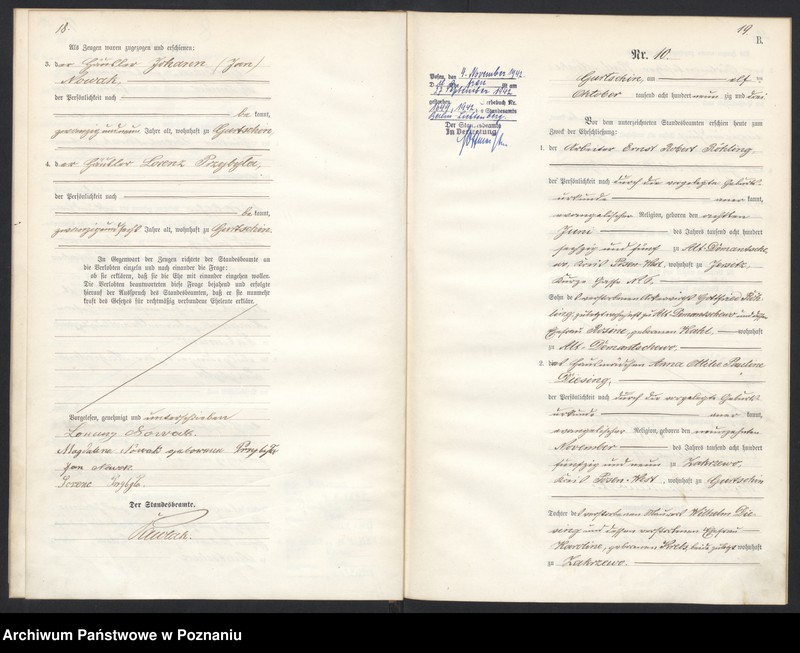 18.
Als Zeugen waren zugezogen und erschienen:
3. der Häusler Johann (Jan)
Nowak
der Persönlichkeit nach
be kannt,
Jahre alt, wohnhaft zu Gurtschin
4. der Häusler Lorenz Przybyla,
der Persönlichkeit nach
be kannt,
zwanzig und sechs Jahre alt, wohnhaft zu Gurtschin.
In Gegenwart der Zeugen richtete der Standesbeamte an
die Verlobten einzeln und nach einander die Frage:
ob sie erklären, daß sie die Ehe mit einander eingehen wollen.
Die Verlobten beantworteten diese Frage bejahend und erfolgte
hierauf der Ausspruch des Standesbeamten, daß er sie nunmehr
kraft des Gesetzes für rechtmäßig verbundene Eheleute erkläre.
Vorgelesen, genehmigt und unterschrieben
Nowak.
Magdalena Nowak geborene Przybyła
Jan Nowak
Der Standesbeamte.
19.
B.
Nr. 10.
Posen, den 9. November 1942
September 1942
gestorben
Sterbebuch Nr.
1942
Standesamts
Berlin-Lichtenberg
Der Standesbeamte
In Vertretung
Gurtschin, am elf ten
Oktober tausend acht hundert neun zig und drei
Vor dem unterzeichneten Standesbeamten erschienen heute zum
Zweck der Eheschließung:
1. der Arbeiter Ernst Robert Röhling,
der Persönlichkeit nach durch die vorgelegte Geburts-
urkunde aner kannt,
evangelischer Religion, geboren den achten
Juni des Jahres tausend acht hundert
sechzig und fünf zu Alt-Domantsche-
wo, Kreis Posen-West, wohnhaft zu Jersitz,
Kurze Gasse No. 6,
Sohn des verstorbenen Gottfried Röh-
ling, zuletzt wohnhaft zu Alt-Domantschewo und dessen
Ehefrau Rosine, geborenen Kahl wohnhaft
zu Alt-Domantschewo,
2. die Hausmädchen Anna Ottilie Pauline
Diesing,
der Persönlichkeit nach durch die vorgelegte Geburts-
urkunde aner kannt,
evangelischer Religion, geboren den neunzehnten
November des Jahres tausend acht hundert
fünfzig und neun zu Zakrzewo,
Kreis Posen-West, wohnhaft zu Gurtschin
Tochter des verstorbenen Wilhelm Die-
sing und dessen verstorbenen Ehefrau
Karoline, geborenen Krebs beide zuletzt wohnhaft
zu Zakrzewo.
Archiwum Państwowe w Poznaniu